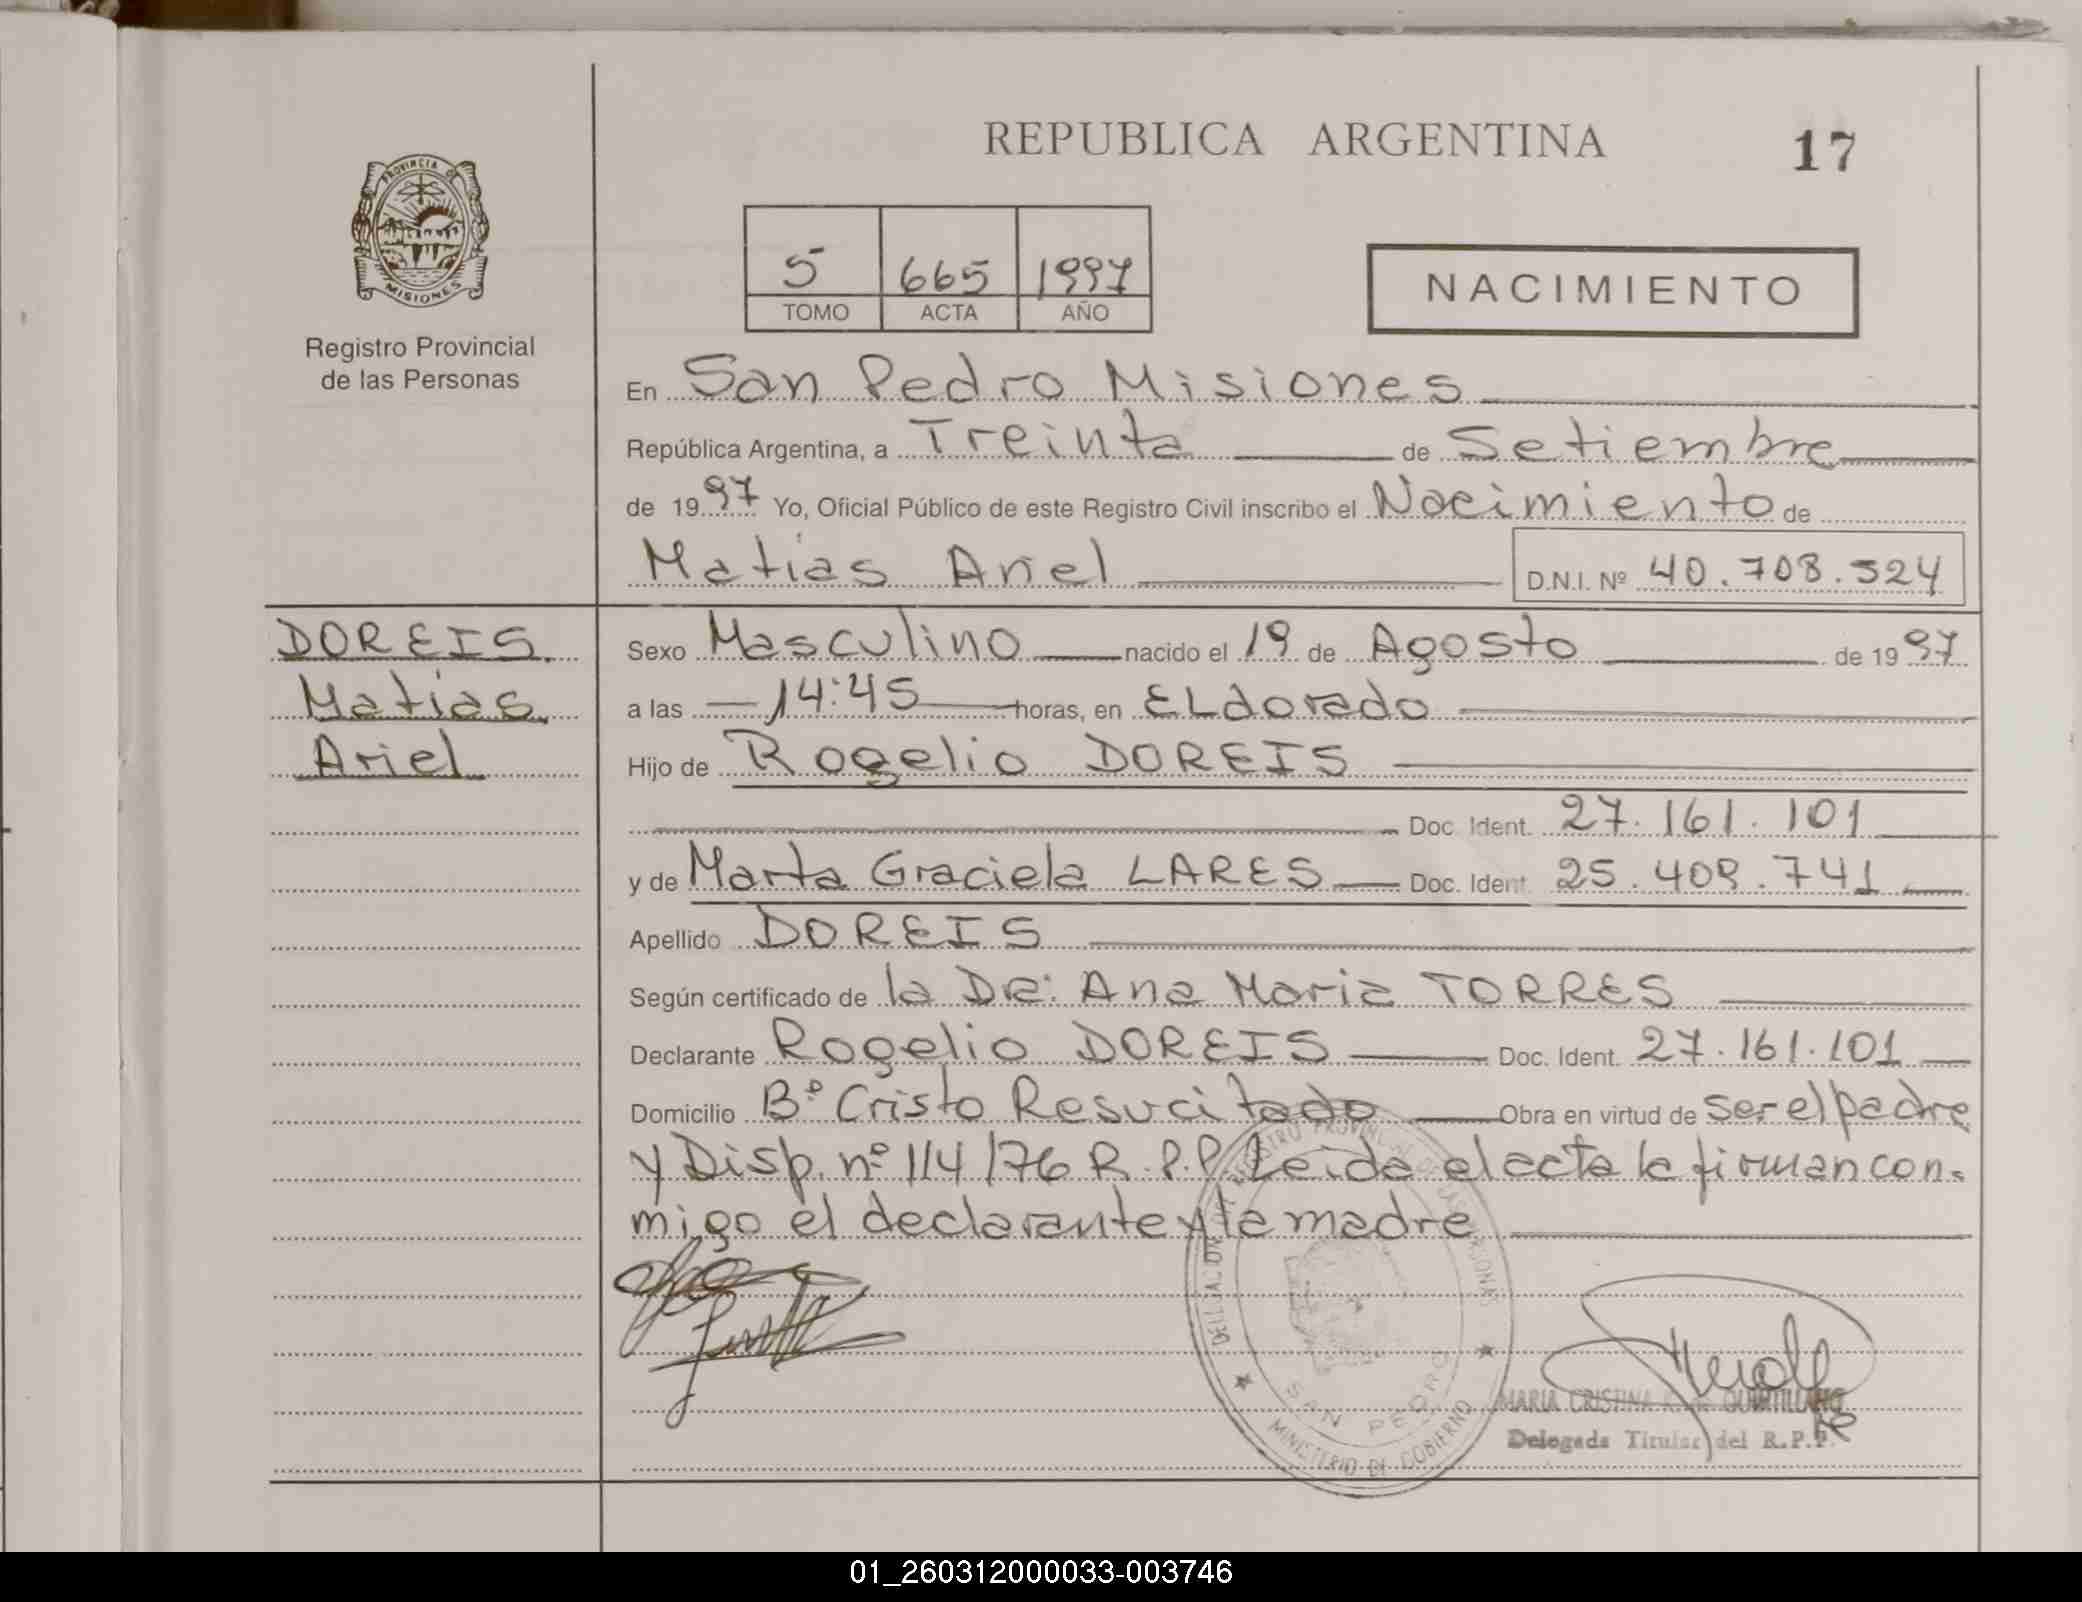 REPUBLICA ARGENTINA
17
PROVINCIA DE
MISIONES
Registro Provincial
de las Personas
5 665 1997
TOMO ACTA AÑO
NACIMIENTO
En San Pedro Misiones
República Argentina, a Treinta de Setiembre
de 1997 Yo, Oficial Público de este Registro Civil inscribo el Nacimiento de
Matias Ariel D.N.I. Nº 40.708.524
DOREIS
Matias
Ariel
Sexo Masculino nacido el 19 de Agosto de 1997
a las 14:45 horas, en ELdorado
Hijo de Rogelio DOREIS
Doc. Ident. 27.161.101
y de Marta Graciela LARES Doc. Ident. 25.409.741
Apellido DOREIS
Según certificado de la Dra: Ana Maria TORRES
Declarante Rogelio DOREIS Doc. Ident. 27.161.101
Domicilio Bº Cristo Resucitado Obra en virtud de ser el padre
y Disp. nº 114/76 R.P.P. Leida el acta la firman con-
migo el declarante y la madre
REGISTRO PROVINCIAL DE LAS PERSONAS
SAN PEDRO
MINISTERIO DE GOBIERNO
MARIA CRISTINA
Delegada Titular del R.P.P.
01_260312000033-003746